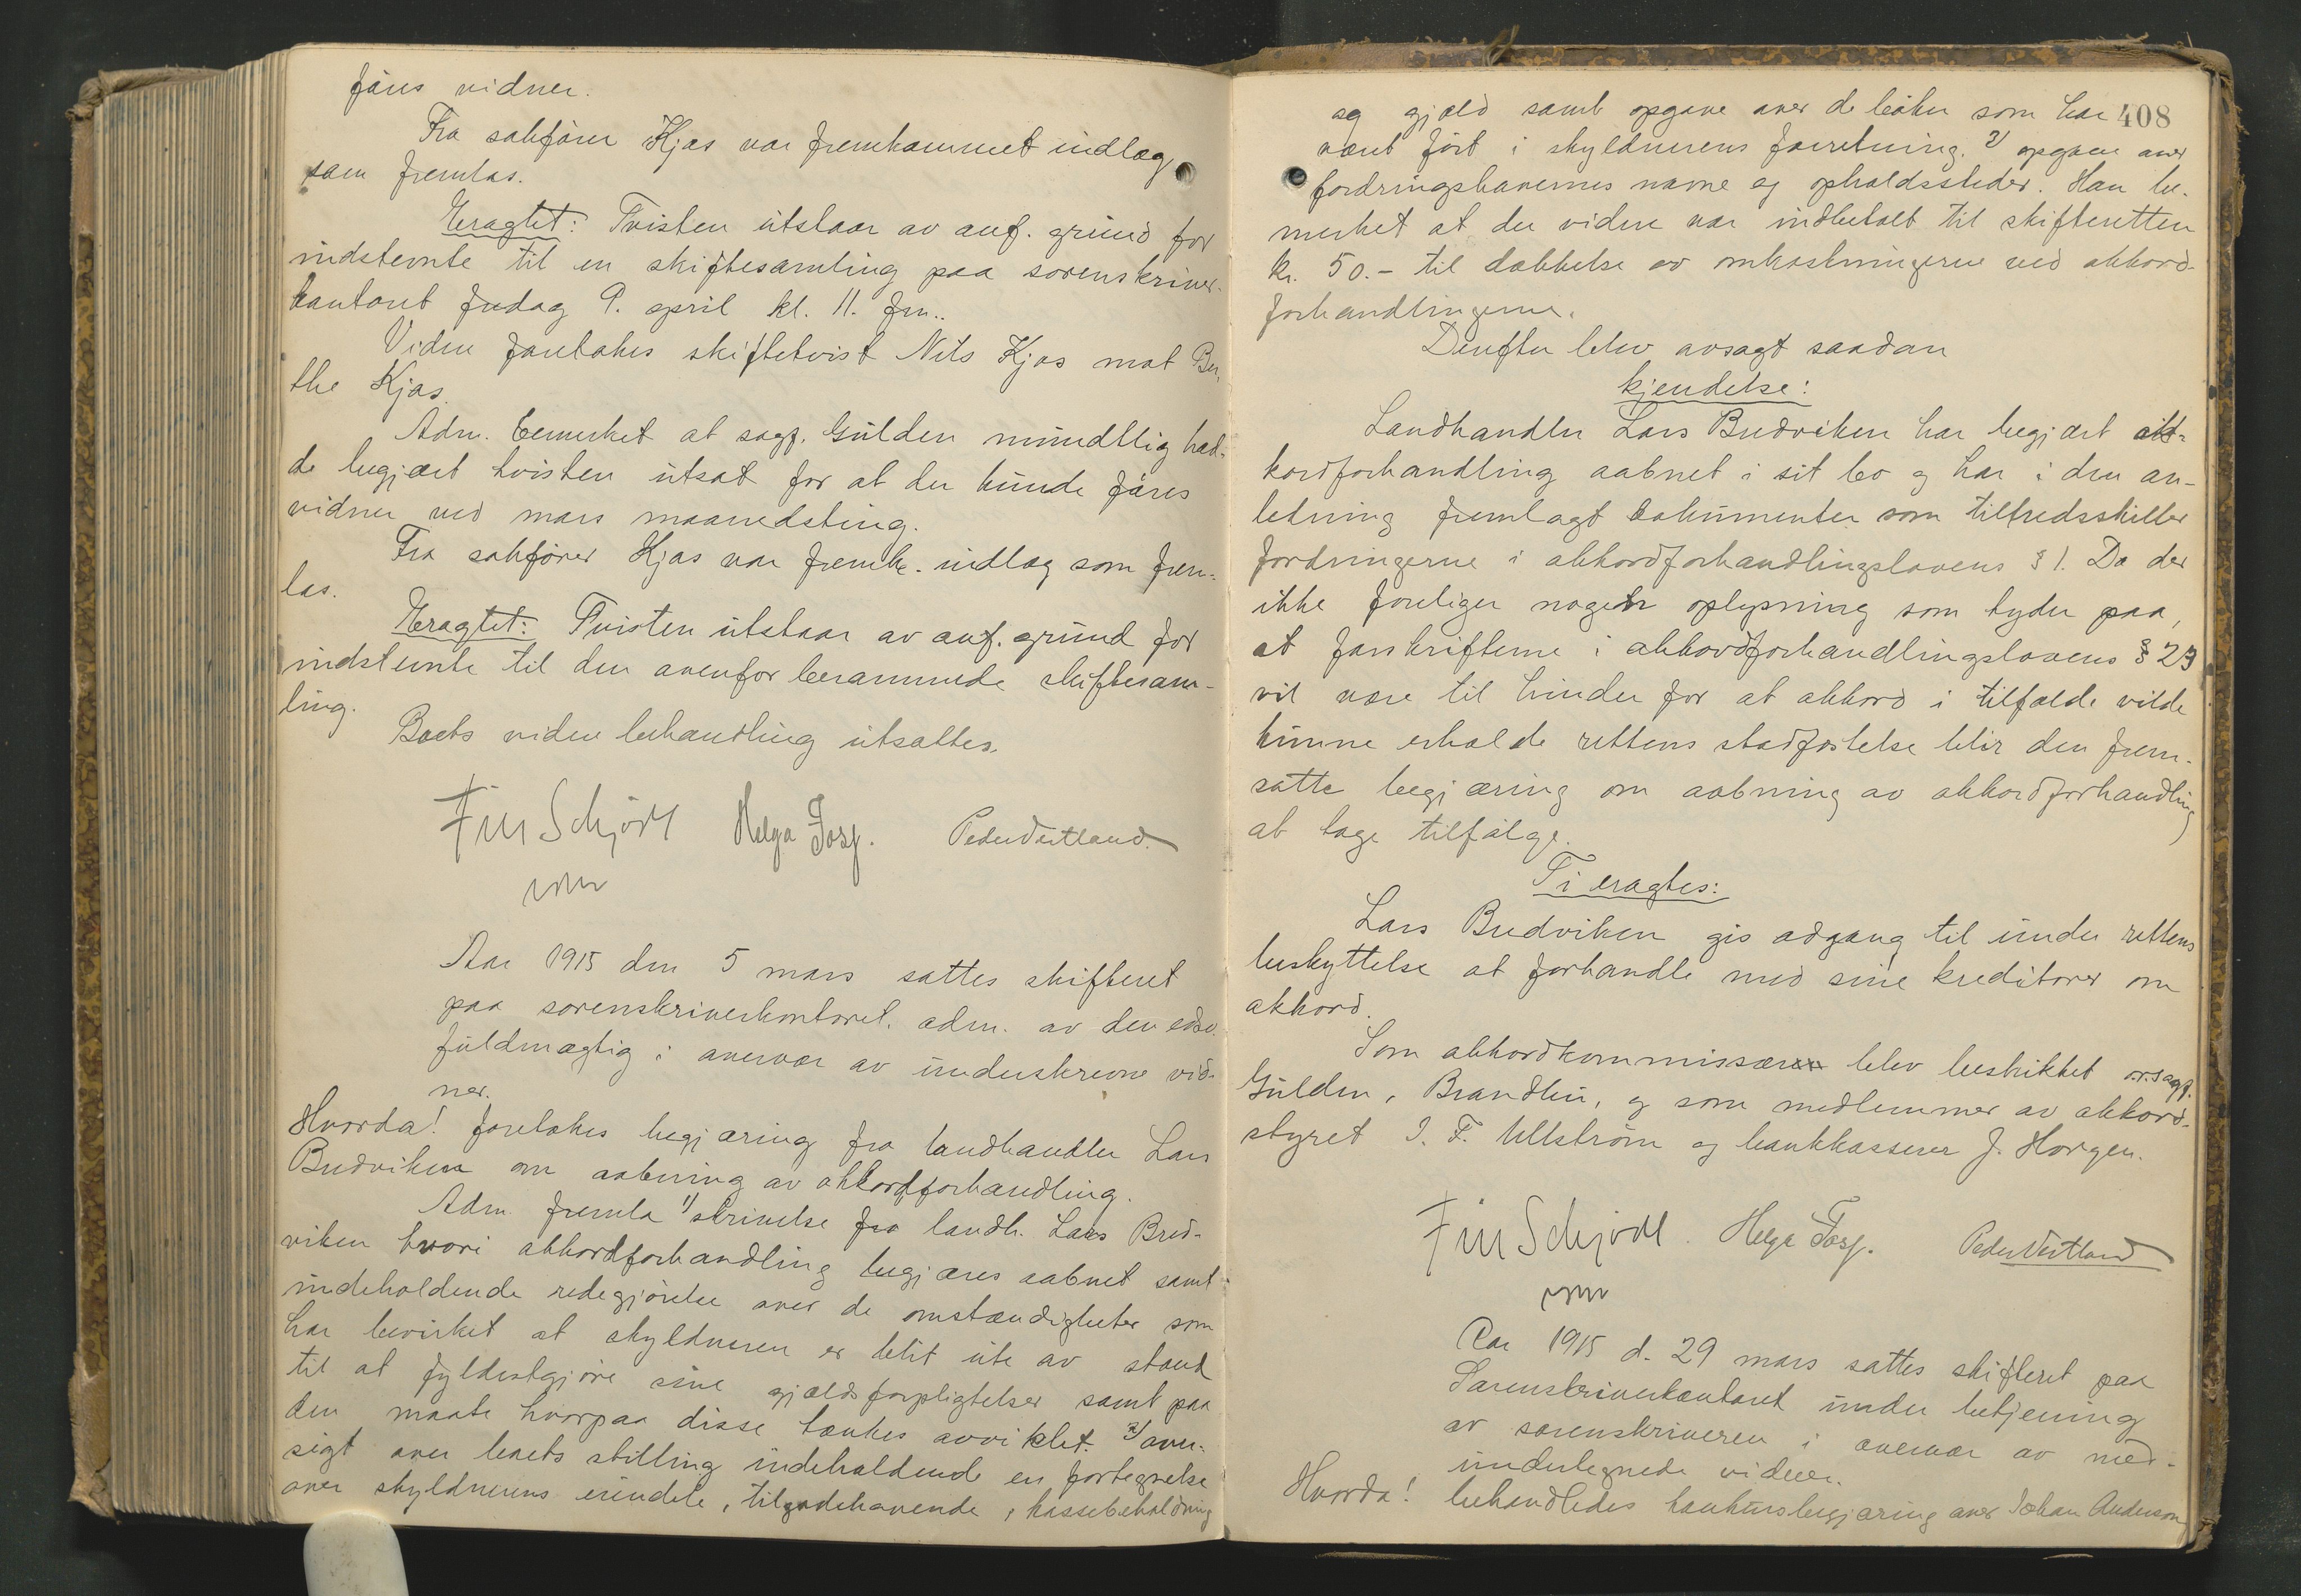 føres vidner.
Fra sakfører Kjos var fremkommet indlæg
som fremlas.
Eragtet: Tvisten utstaar av anf. grund for
indstevnte til en skiftesamling paa sorenskriver-
kontoret fredag 9. april kl. 11. fm..
Videre foretokes skiftetvist Nils Kjos mot Ber-
the Kjos.
Adm. bemerket at sagf. Gulden mundtlig had-
de begjært tvisten utsat for at der kunde føres
vidner ved mars maanedsting.
Fra sakfører Kjos var fremk. indlæg som frem-
las.
Eragtet: Tvisten utstaar av anf. grund for
indstevnte til den ovenfor berammede skiftesam-
ling.
Boets videre behandling utsattes.
Finn Schjødt Helga Fosf. Peder Vestland.
Aar 1915 den 5 mars sattes skifteret
paa sorenskriverkontoret. adm. av den edsv.
fuldmægtig i overvær av underskrevne vid-
ner.
Hvorda! foretokes begjæring fra landhandler Lars
Budviken om aabning av akkordforhandling.
Adm. fremla 1/ skrivelse fra landh. Lars Bud-
viken hvori akkordforhandling begjæres aabnet samt
indeholdende redegjørelse over de omstændigheter som
har bevirket at skyldneren er blit ute av stand
til at fyldestgjøre sine gjældsforpligtelser samt paa
den maate hvorpaa disse tænkes avviklet. 2/ over-
sigt over boets stilling indeholdende en fortegnelse
over skyldnerens eiendele, tilgodehavende, kassebeholdning
og gjæld samt opgave over de bøker som har 408
været ført i skyldnerens forretning. 3/ opgave over
fordringshavernes navne og opholdssteder. Han be-
merket at der videre var indbetalt til skifteretten
kr. 50.- til dækkelse av omkostningerne ved akkord-
forhandlingerne.
Derefter blev avsagt saadan
kjendelse:
Landhandler Lars Budviken har begjært ak-
kordforhandling aabnet i sit bo og har i den an-
ledning fremlagt dokumenter som tilfredsstiller
fordringerne i akkordforhandlingslovens § 1. Da der
ikke foreligger nogen oplysning som tyder paa,
at forskrifterne i akkordforhandlingslovens § 29
vil være til hinder for at akkord i tilfælde vilde
kunne erholde rettens stadfæstelse blir den frem-
satte begjæring om aabning av akkordforhandling
at tage tilfølge.
Ti eragtes:
Lars Budviken gis adgang til under rettens
beskyttelse at forhandle med sine kreditorer om
akkord.
Som akkordkommissær blev beskikket o.r.sagf.
Gulden, Brandbu, og som medlemmer av akkord-
styret I. F. Ullstrøm og bankkasserer J. Horgen.
Finn Schjødt. Helga Fosf. Peder Vestland
Aar 1915 d. 29 mars sattes skifteret paa
Sorenskriverkontoret under betjening
av sorenskriveren i overvær av med-
undertegnede vidner.
Hvorda! behandledes konkursbegjæring over Johan Anderson